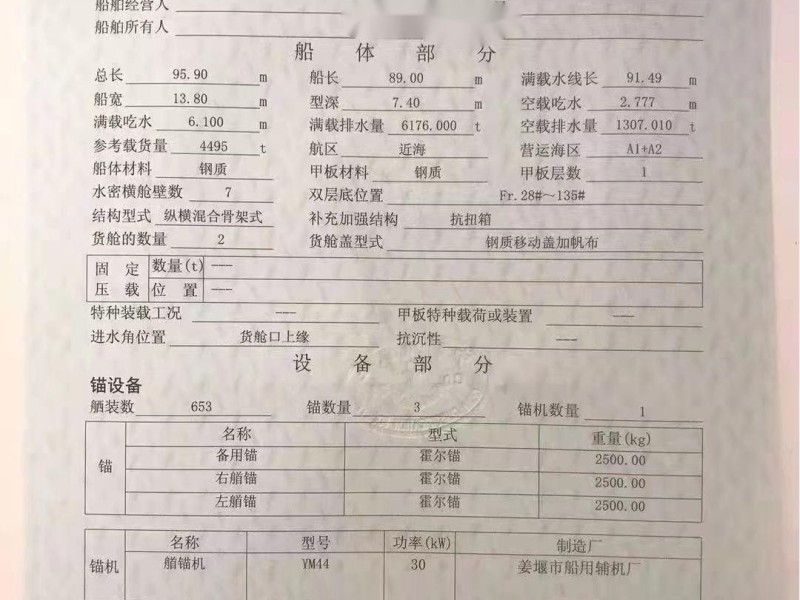 船舶经营人
船舶所有人
船 体 部 分
总长 95.90 m 船长 89.00 m 满载水线长 91.49 m
船宽 13.80 m 型深 7.40 m 空载吃水 2.777 m
满载吃水 6.100 m 满载排水量 6176.000 t 空载排水量 1307.010 t
参考载货量 4495 t 航区 近海 营运海区 A1+A2
船体材料 钢质 甲板材料 钢质 甲板层数 1
水密横舱壁数 7 双层底位置 Fr.28#～135#
结构型式 纵横混合骨架式 补充加强结构 抗扭箱
货舱的数量 2 货舱盖型式 钢质移动盖加帆布
固 定 数量(t) ---
压 载 位 置 ---
特种装载工况 --- 甲板特种载荷或装置 ---
进水角位置 货舱口上缘 抗沉性 ---
设 备 部 分
锚设备
舾装数 653 锚数量 3 锚机数量 1
锚 名称 型式 重量(kg)
备用锚 霍尔锚 2500.00
右艏锚 霍尔锚 2500.00
左艏锚 霍尔锚 2500.00
锚机 名称 型号 功率(kW) 制造厂
艏锚机 YM44 30 姜堰市船用辅机厂